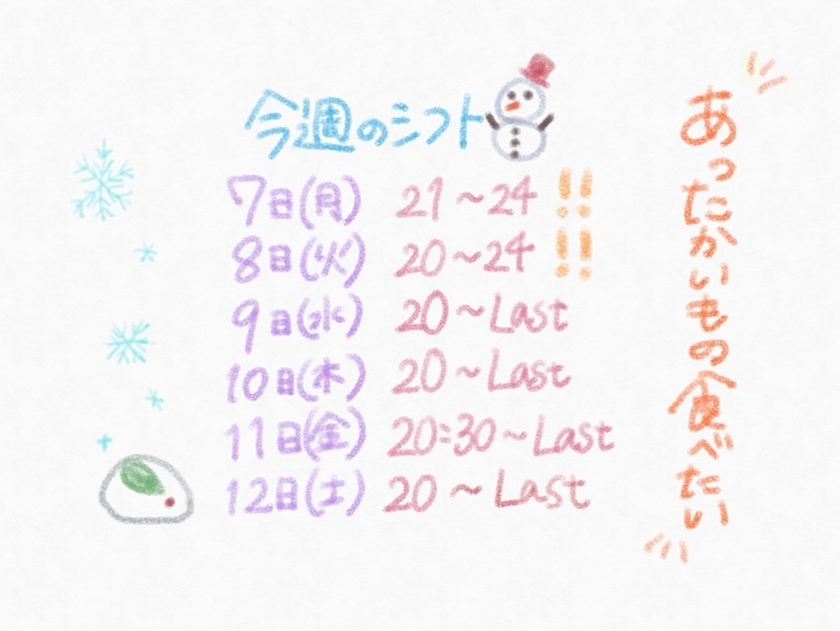 今週のシフト
7日(月) 21~24 !!
8日(火) 20~24 !!
9日(水) 20~Last
10日(木) 20~Last
11日(金) 20:30~Last
12日(土) 20~Last
あったかいもの食べたい